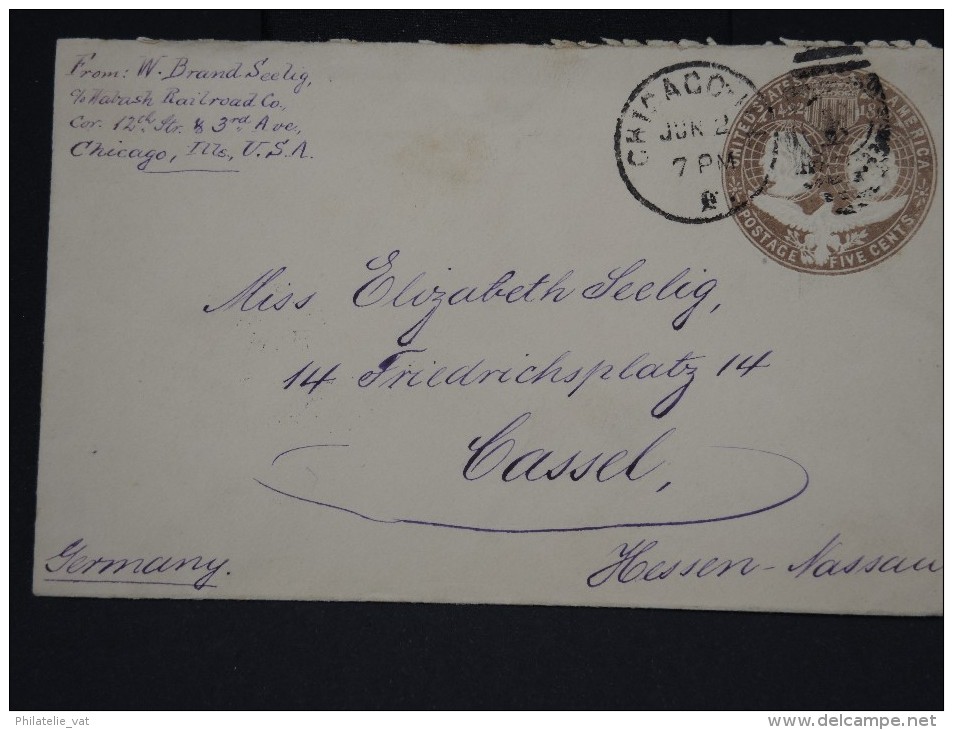 From: W. Brand Seelig,
c/o Wabash Railroad Co.,
Cor. 12th Str. & 3rd Ave,
Chicago, Ills, U.S.A.
CHICAGO
JUN 2
7 PM
UNITED STATES AMERICA
POSTAGE FIVE CENTS
Miss Elizabeth Seelig,
14 Friedrichsplatz 14
Cassel,
Germany.
Hessen-Nassau
Philatelie_vat
www.delcampe.net